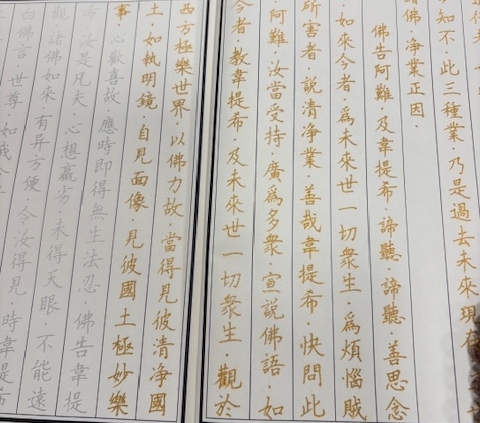 知不·此三種業·乃是過去未來現在
諸佛·淨業正因·
佛告阿難·及韋提希·諦聽·諦聽·善思念
·如來今者·為未來世一切眾生·為煩惱賊
所害者·說清淨業·善哉韋提希·快問此
·阿難·汝當受持·廣為多眾·宣說佛語·如
今者·教韋提希·及未來世一切眾生·觀於
西方極樂世界·以佛力故·當得見彼清淨國
土·如執明鏡·自見面像·見彼國土極妙樂
事·心歡喜故·應時即得無生法忍·佛告韋提
希·汝是凡夫·心想羸劣·未得天眼·不能遠
觀諸佛如來·有異方便·令汝得見·時韋提希
白佛言·世尊·如我